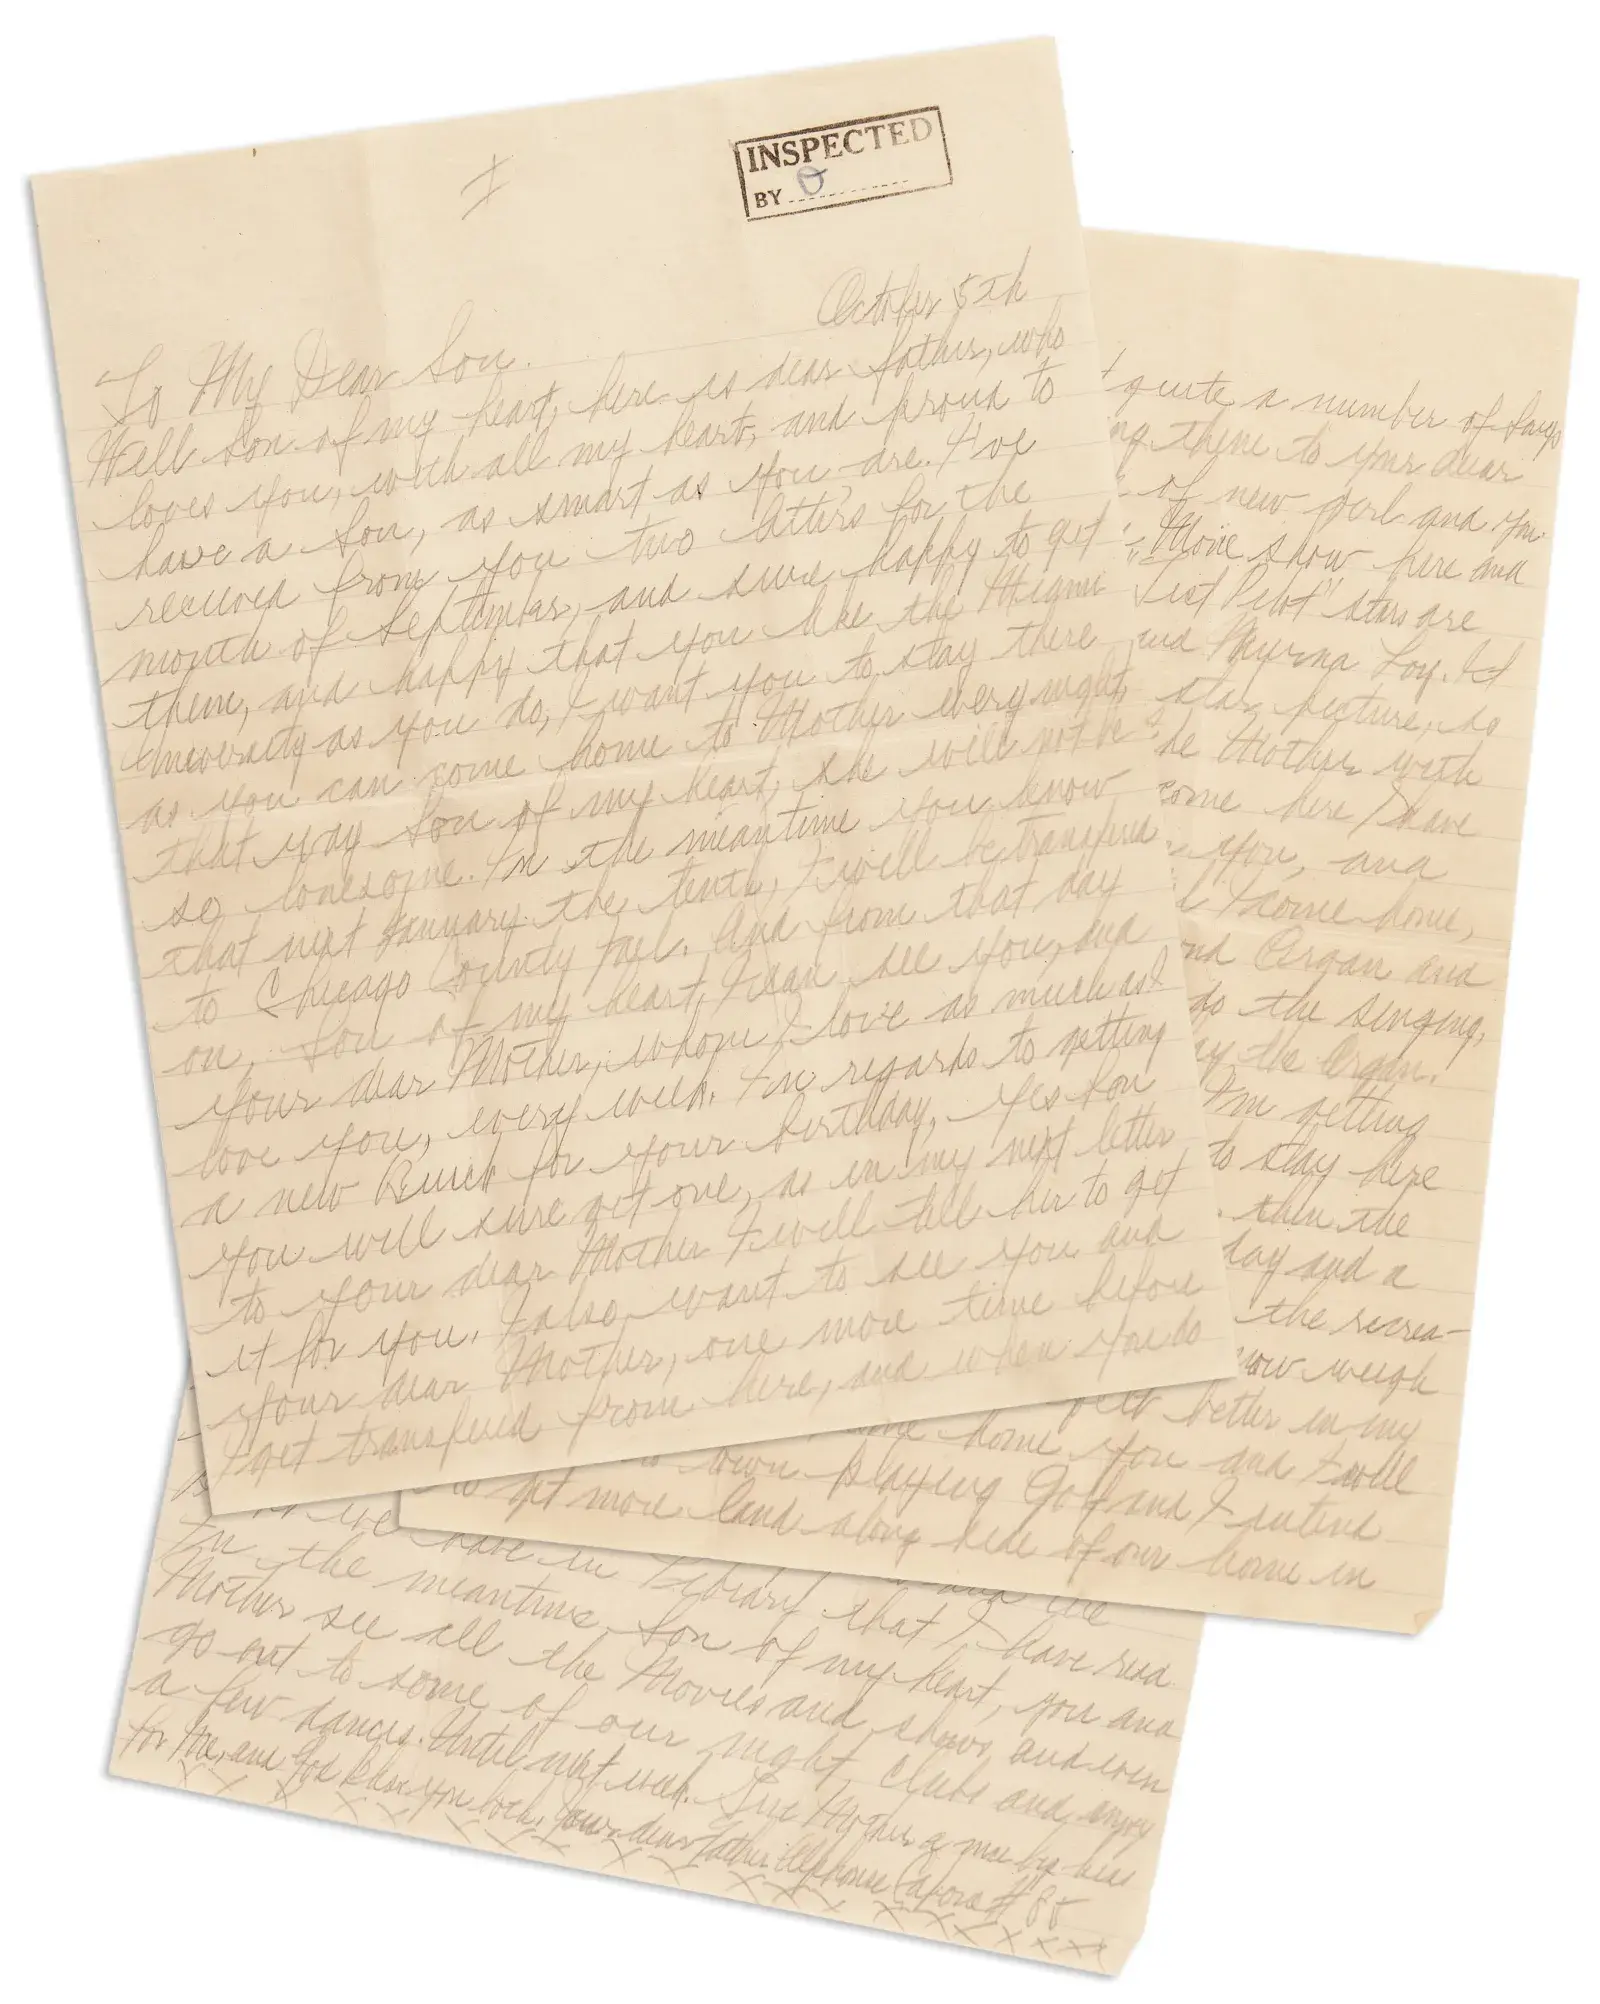 I
INSPECTED
BY O
October 5th
To My Dear Son.
Well Son of my heart, here is dear father, who
loves you, with all my heart, and proud to
have a Son, as smart as you are. I've
received from you two letters for the
month of September, and sure happy to get
them, and happy that you like the Miami
University as you do, I want you to stay there
as you can come home to Mother every night,
that way Son of my heart, she will not be
so lonesome. In the meantime you know
that next January the tenth, I will be transfered
to Chicago County Jail. And from that day
on, Son of my heart, I can see you, and
your dear Mother, whom I love as much as I
love you, every week. In regards to getting
a new Buick for your birthday, Yes Son
you will sure get one, as in my next letter
to your dear Mother I will tell her to get
it for you. I also want to see you and
your dear Mother, one more time before
I get transfered from here, and when you do
quite a number of Songs
them to your dear
of new girl and you
Movie show here and
Test Pilot" stars are
and Myrna Loy. It
star picture, so
Mother with
come here I have
you, and
I come home,
and Organ and
do the singing,
the Organ.
I'm getting
to stay here
then the
day and a
the recrea-
now weigh
felt better in my
home you and I will
own playing Golf and I intend
to get more land along side of our home in
we have in Library that I have read
In the meantime Son of my heart, you and
Mother see all the Movies and shows, and even
go out to some of our night clubs and enjoy
a few dances. Until next week. Give Mother a nice big kiss
for Me, and God bless you both. Your dear father Alphonse Capone #85
X X X X X X X X X X X X X X X X X X X X X X